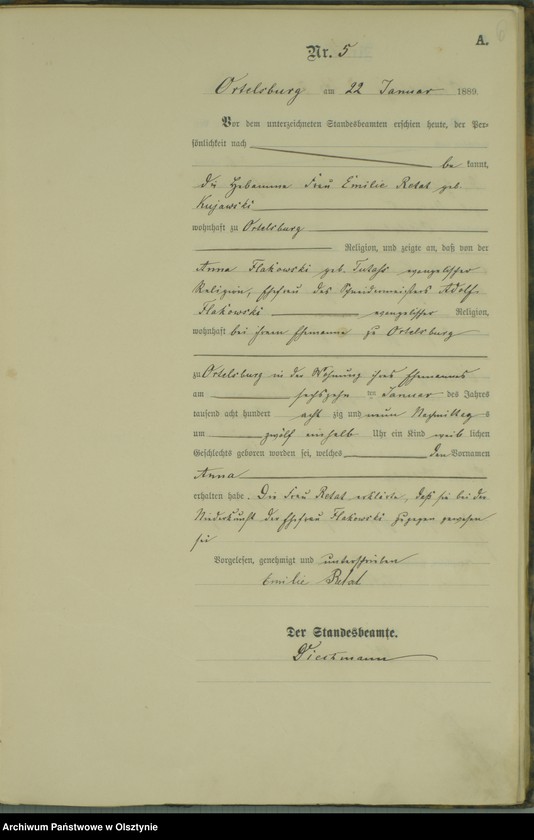 A.
Nr. 5
Ortelsburg am 22 Januar 1889.
Vor dem unterzeichneten Standesbeamten erschien heute, der Per-
sönlichkeit nach
be kannt,
die Hebamme Frau Emilie Retat geb.
Kujawski
wohnhaft zu Ortelsburg
Religion, und zeigte an, daß von der
Anna Flakowski geb. evangelischer
Religion, Ehefrau des Schneidermeisters Adolf
Flakowski evangelischer Religion,
wohnhaft bei ihrem Ehemanne zu Ortelsburg
zu Ortelsburg in der Wohnung ihres Ehemannes
am sechszehn ten Januar des Jahres
tausend acht hundert acht zig und neun Nachmittag s
um zwölf einhalb Uhr ein Kind weib lichen
Geschlechts geboren worden sei, welches den Vornamen
Anna
erhalten habe. Die Frau Retat erklärte, daß sie bei der
Niederkunft der Ehefrau Flakowski zugegen gewesen
sei
Vorgelesen, genehmigt und unterschrieben
Emilie Retat
Der Standesbeamte.
Archiwum Państwowe w Olsztynie